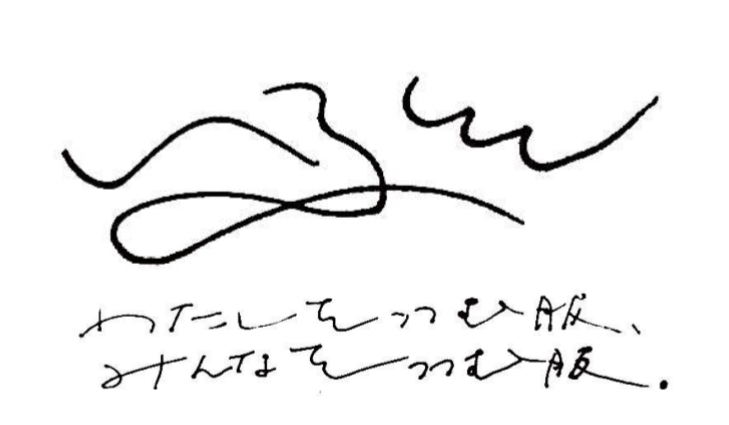 わたしをつつむ服、
みんなをつつむ服.